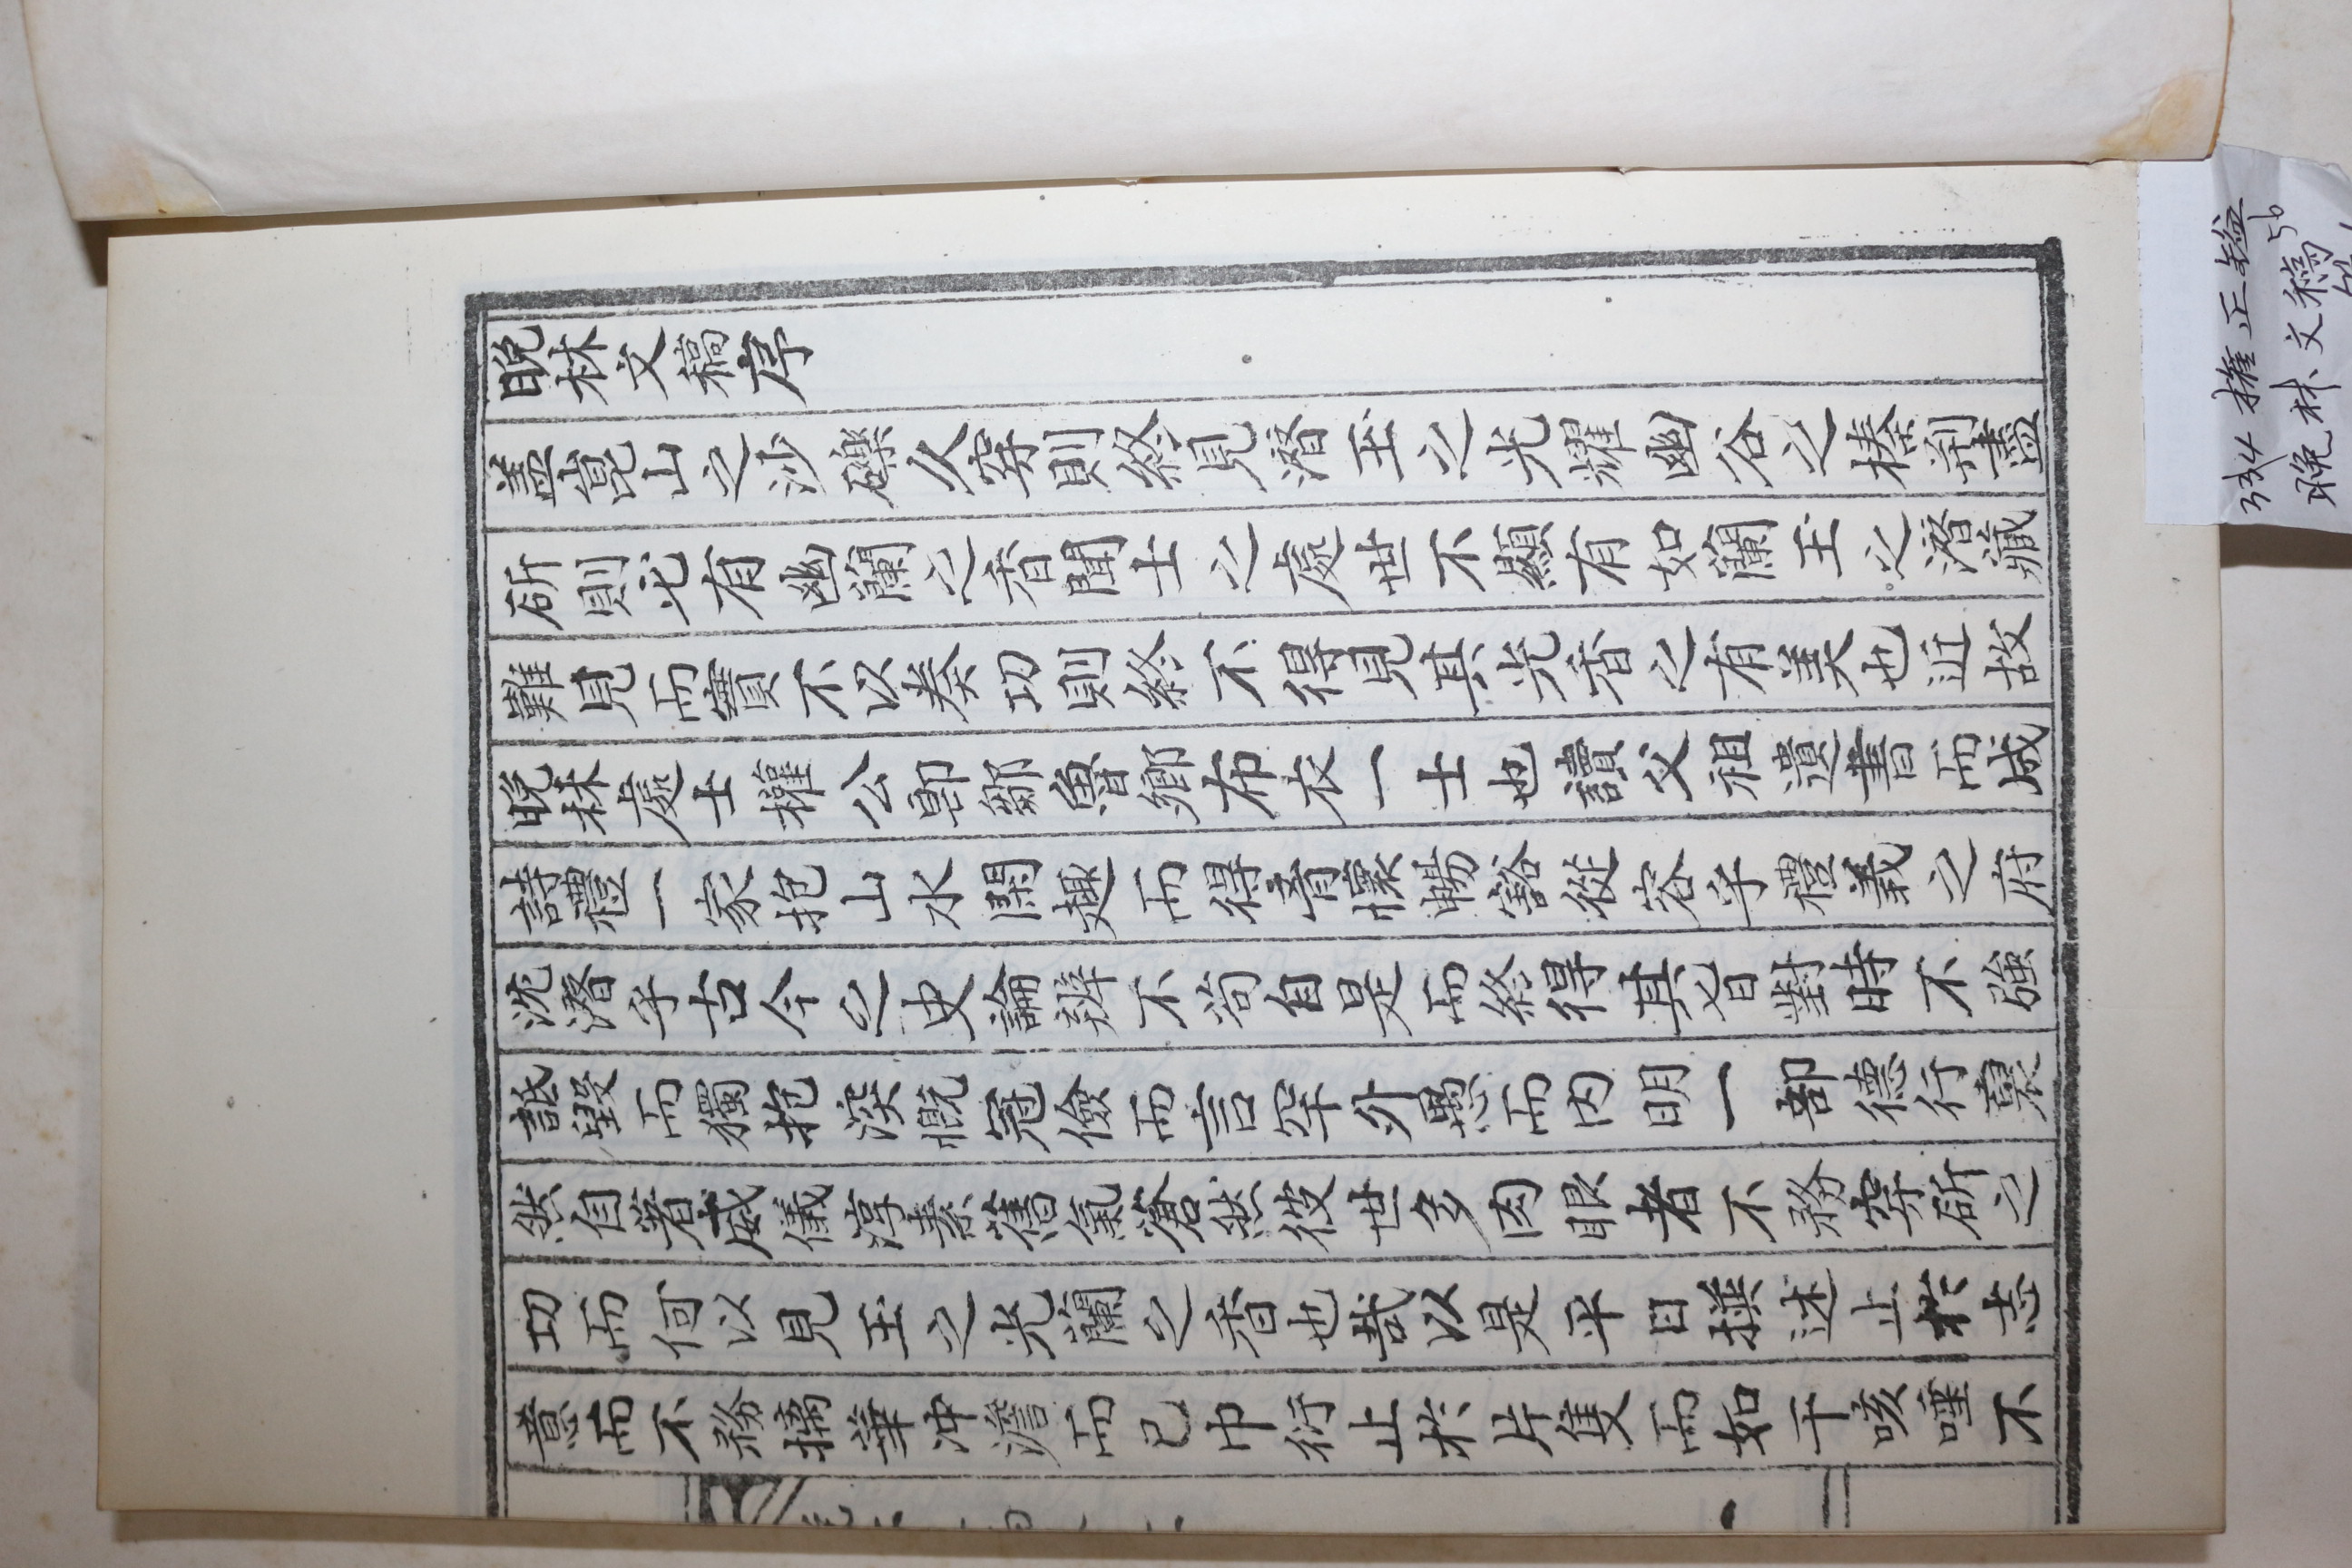 晩林文稿序
盖崑山之沙礫久穿則終見潛玉之光耀幽谷之榛荊盡
斫則必有幽蘭之香聞士之處世不顯有如蘭玉之潛藏
難見而實不以奏功則終不得見其光香之有美也近故
晩林處士權公卽鄒魯鄉布衣一士也讀父祖遺書而成
詩禮一家抱山水閑趣而得胷懷暢豁從容乎禮義之府
沈潛乎古今之史論辨不苟自是而終得其旨對時不強
詆毀而獨抱深慨冠儉而言罕外愚而內明一部德行裏
然自著威儀淳素舊氣蒼然彼世多肉眼者不務穿斫之
功而何以見玉之光蘭之香也哉以是平日撰述止於志
意而不務摛華冲澹而已巾衍止於片隻而如干咳唾不
334 權正鎰
晩林文稿 56